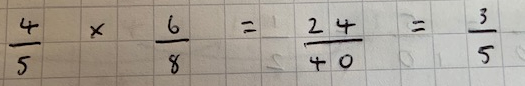 4/5 × 6/8 = 24/40 = 3/5